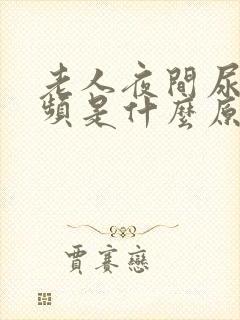 老人夜間尿
頻是什麼原
賈賽戀